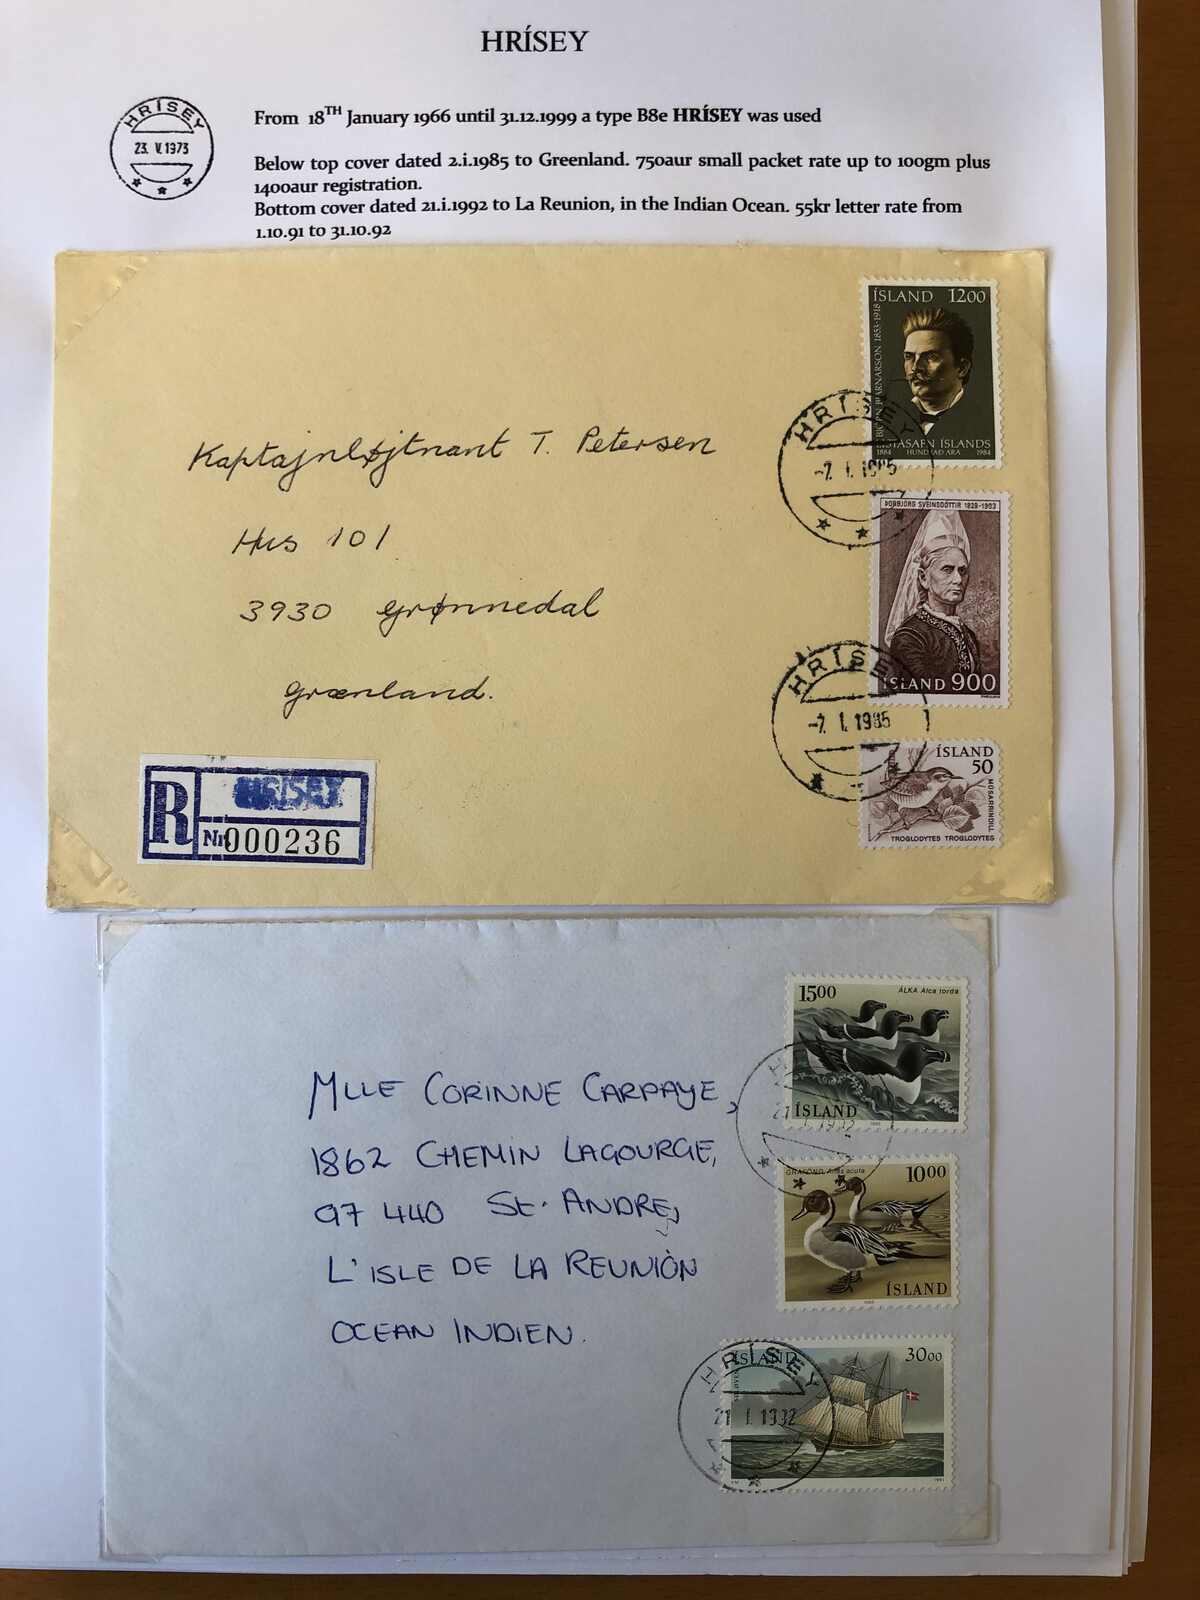 HRÍSEY
HRÍSEY
23. V.1973
From 18TH January 1966 until 31.12.1999 a type B8e HRÍSEY was used
Below top cover dated 2.i.1985 to Greenland. 750aur small packet rate up to 100gm plus
1400aur registration.
Bottom cover dated 21.i.1992 to La Reunion, in the Indian Ocean. 55kr letter rate from
1.10.91 to 31.10.92
ÍSLAND 1200
BJÖRN BJARNARSON 1853-1918
LISTASAFN ÍSLANDS
1884 HUNDRAÐ ÁRA 1984
HRÍSEY
-7. I. 1985
Kaptajnløjtnant T. Petersen
Hus 101
3930 Grønnedal
Grænland.
ÞORBJÖRG SVEINSDÓTTIR 1828-1903
ÍSLAND 900
HRÍSEY
-7. I. 1985
ÍSLAND
50
MÚSARRINDILL
TROGLODYTES TROGLODYTES
R
HRÍSEY
Nr. 000236
1500 ÁLKA Alca torda
ÍSLAND
21 I 1992
GRAFÖND Anas acuta 1000
ÍSLAND
Mlle CORINNE CARPAYE,
1862 CHEMIN LAGOURGE,
97 440 St. ANDRE,
L'ISLE DE LA REUNIÒN
OCEAN INDIEN.
ÍSLAND 3000
HRÍSEY
21 I. 1992
1991